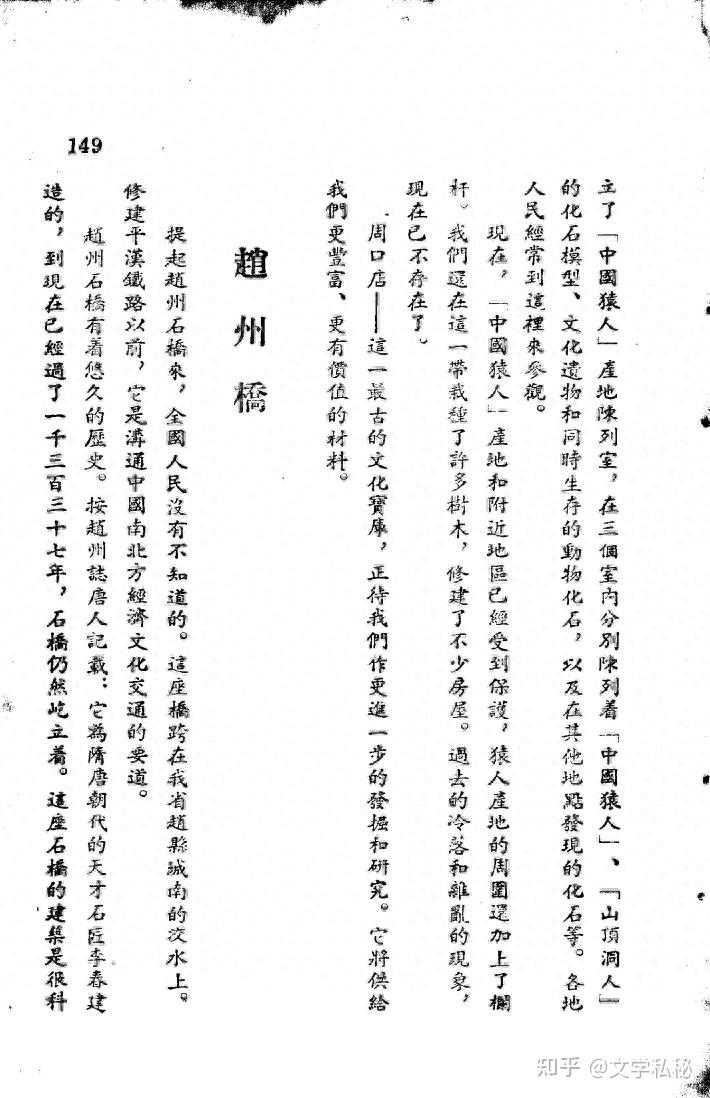 149
立了「中國猿人」產地陳列室，在三個室內分別陳列着「中國猿人」、「山頂洞人」
的化石模型、文化遺物和同時生存的動物化石，以及在其他地點發現的化石等。各地
人民經常到這裡來參觀。
現在，「中國猿人」產地和附近地區已經受到保護，猿人產地的周圍還加上了欄
杆。我們還在這一帶栽種了許多樹木，修建了不少房屋。過去的冷落和雜亂的現象，
現在已不存在了。
周口店——這一最古的文化寶庫，正待我們作更進一步的發掘和研究。它將供給
我們更豐富、更有價值的材料。
趙州橋
提起趙州石橋來，全國人民沒有不知道的。這座橋跨在我省趙縣城南的洨水上。
修建平漢鐵路以前，它是溝通中國南北方經濟文化交通的要道。
趙州石橋有着悠久的歷史。按趙州誌唐人記載：它為隋唐朝代的天才石匠李春建
造的，到現在已經過了一千三百三十七年，石橋仍然屹立着。這座石橋的建築是很科
知乎 @文学私秘